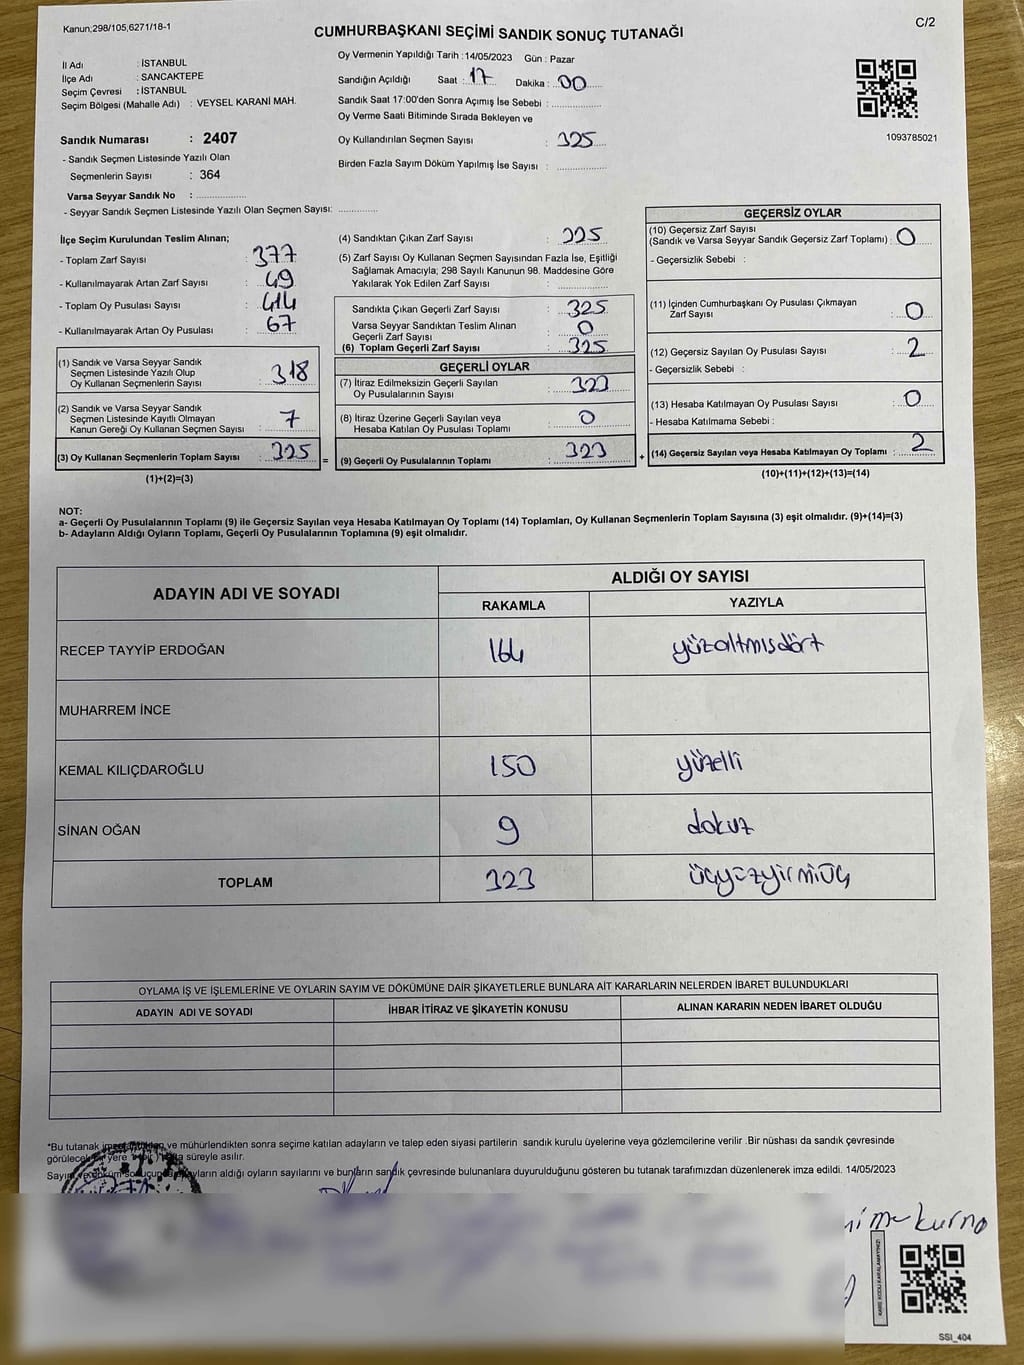 Kanun;298/105,6271/18-1
C/2
CUMHURBAŞKANI SEÇİMİ SANDIK SONUÇ TUTANAĞI
İl Adı : İSTANBUL
İlçe Adı : SANCAKTEPE
Seçim Çevresi : İSTANBUL
Seçim Bölgesi (Mahalle Adı) : VEYSEL KARANİ MAH.
Sandık Numarası : 2407
- Sandık Seçmen Listesinde Yazılı Olan
Seçmenlerin Sayısı : 364
Varsa Seyyar Sandık No :
- Seyyar Sandık Seçmen Listesinde Yazılı Olan Seçmen Sayısı:
Oy Vermenin Yapıldığı Tarih : 14/05/2023 Gün : Pazar
Sandığın Açıldığı Saat : 17 Dakika : 00
Sandık Saat 17:00'den Sonra Açımış İse Sebebi :
Oy Verme Saati Bitiminde Sırada Bekleyen ve
Oy Kullandırılan Seçmen Sayısı : 325
Birden Fazla Sayım Döküm Yapılmış İse Sayısı :
1093785021
İlçe Seçim Kurulundan Teslim Alınan;
- Toplam Zarf Sayısı : 377
- Kullanılmayarak Artan Zarf Sayısı : 49
- Toplam Oy Pusulası Sayısı : 414
- Kullanılmayarak Artan Oy Pusulası : 67
(1) Sandık ve Varsa Seyyar Sandık
Seçmen Listesinde Yazılı Olup
Oy Kullanan Seçmenlerin Sayısı : 318
(2) Sandık ve Varsa Seyyar Sandık
Seçmen Listesinde Kayıtlı Olmayan
Kanun Gereği Oy Kullanan Seçmen Sayısı : 7
(3) Oy Kullanan Seçmenlerin Toplam Sayısı : 325 =
(1)+(2)=(3)
(4) Sandıktan Çıkan Zarf Sayısı : 325
(5) Zarf Sayısı Oy Kullanan Seçmen Sayısından Fazla İse, Eşitliği
Sağlamak Amacıyla; 298 Sayılı Kanunun 98. Maddesine Göre
Yakılarak Yok Edilen Zarf Sayısı :
Sandıkta Çıkan Geçerli Zarf Sayısı : 325
Varsa Seyyar Sandıktan Teslim Alınan
Geçerli Zarf Sayısı : 0
(6) Toplam Geçerli Zarf Sayısı : 325
GEÇERLİ OYLAR
(7) İtiraz Edilmeksizin Geçerli Sayılan
Oy Pusulalarının Sayısı : 323
(8) İtiraz Üzerine Geçerli Sayılan veya
Hesaba Katılan Oy Pusulası Toplamı : 0
(9) Geçerli Oy Pusulalarının Toplamı : 323 +
GEÇERSİZ OYLAR
(10) Geçersiz Zarf Sayısı
(Sandık ve Varsa Seyyar Sandık Geçersiz Zarf Toplamı) : 0
- Geçersizlik Sebebi :
(11) İçinden Cumhurbaşkanı Oy Pusulası Çıkmayan
Zarf Sayısı : 0
(12) Geçersiz Sayılan Oy Pusulası Sayısı : 2
- Geçersizlik Sebebi :
(13) Hesaba Katılmayan Oy Pusulası Sayısı : 0
- Hesaba Katılmama Sebebi :
(14) Geçersiz Sayılan veya Hesaba Katılmayan Oy Toplamı : 2
(10)+(11)+(12)+(13)=(14)
NOT:
a- Geçerli Oy Pusulalarının Toplamı (9) ile Geçersiz Sayılan veya Hesaba Katılmayan Oy Toplamı (14) Toplamları, Oy Kullanan Seçmenlerin Toplam Sayısına (3) eşit olmalıdır. (9)+(14)=(3)
b- Adayların Aldığı Oyların Toplamı, Geçerli Oy Pusulalarının Toplamına (9) eşit olmalıdır.
ADAYIN ADI VE SOYADI ALDIĞI OY SAYISI
RAKAMLA YAZIYLA
RECEP TAYYİP ERDOĞAN 164 yüzaltmısdört
MUHARREM İNCE
KEMAL KILIÇDAROĞLU 150 yüzelli
SİNAN OĞAN 9 dokuz
TOPLAM 323 üçyüzyirmiÜç
OYLAMA İŞ VE İŞLEMLERİNE VE OYLARIN SAYIM VE DÖKÜMÜNE DAİR ŞİKAYETLERLE BUNLARA AİT KARARLARIN NELERDEN İBARET BULUNDUKLARI
ADAYIN ADI VE SOYADI İHBAR İTİRAZ VE ŞİKAYETİN KONUSU ALINAN KARARIN NEDEN İBARET OLDUĞU
*Bu tutanak ve mühürlendikten sonra seçime katılan adayların ve talep eden siyasi partilerin sandık kurulu üyelerine veya gözlemcilerine verilir .Bir nüshası da sandık çevresinde
yere süreyle asılır.
aldığı oyların sayılarını ve bunların sandık çevresinde bulunanlara duyurulduğunu gösteren bu tutanak tarafımızdan düzenlenerek imza edildi. 14/05/2023
KARE KODU KARALAMAYINIZ!
SSI_404